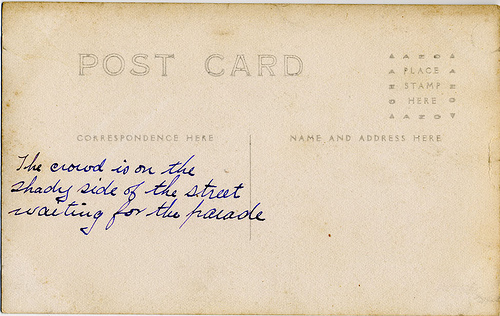 POST CARD
A A Z O A
A PLACE A
Z STAMP Z
O HERE O
A A Z O V
CORRESPONDENCE HERE
NAME AND ADDRESS HERE
The crowd is on the
shady side of the street
waiting for the parade